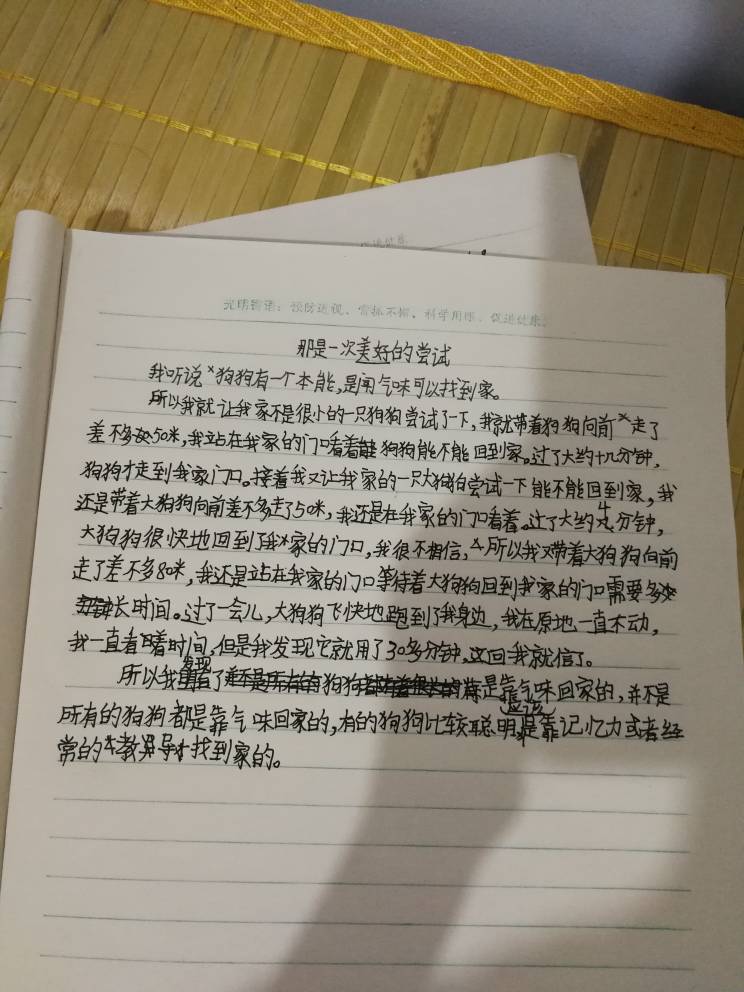 促进健康
光明寄语:预防近视、常抓不懈、科学用眼、促进健康。
那是一次美好的尝试
我听说狗狗有一个本能,是用气味可以找到家。
所以我就让我家不是很小的一只狗狗尝试了一下,我就带着狗狗向前走了
差不多50米,我站在我家的门口看着狗狗能不能回到家。过了大约十几分钟,
狗狗才走到我家门口。接着我又让我家的一只大狗狗尝试一下能不能回到家,我
还是带着大狗狗向前差不多走了50米,我还是在我家的门口看着。过了大约4分钟,
大狗狗很快地回到了我家的门口,我很不相信,所以我又带着大狗狗向前
走了差不多80米,我还是站在我家的门口等待着大狗狗回到我家的门口需要多
长时间。过了一会儿,大狗狗飞快地跑到了我身边,我在原地一直不动,
我一直看着时间,但是我发现它就用了30多分钟,这回我就信了。
所以我发现了狗狗是靠气味回家的,并不是
所有的狗狗都是靠气味回家的,有的狗狗比较聪明,应该是靠记忆力或者经
常的教导才找到家的。